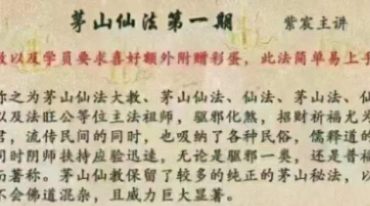 茅山仙法第一期
紫宸主讲
以及学员要求喜好额外附赠彩蛋，此法简单易上手
称之为茅山仙法大教、茅山仙法、仙法、茅山法、仙
以及法旺公等位主法祖师，驱邪化煞，招财祈福尤为
君，流传民间的同时，也吸纳了各种民俗，儒释道的
同时阴师扶持应验迅速，无论是驱邪一类，还是普福
而著称。茅山仙教保留了较多的纯正的茅山秘法，以
不会佛道混杂，且威力巨大显著。